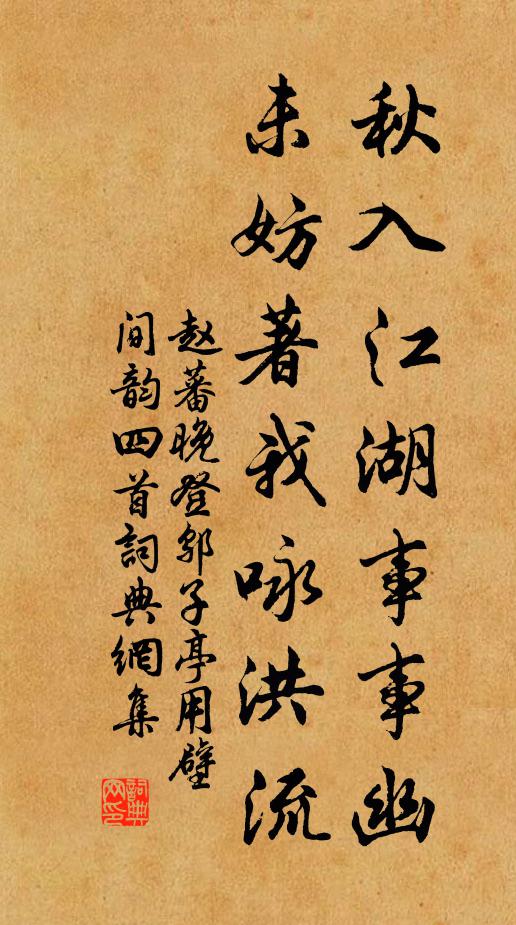 秋入江湖事事幽
未妨著我咏洪流
赵蕃晚登邬子亭用壁
间韵四首詞典網集
詞典網印